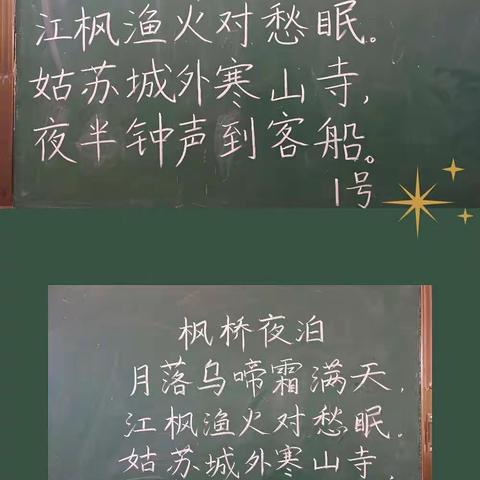 江枫渔火对愁眠。
姑苏城外寒山寺,
夜半钟声到客船。
1号
枫桥夜泊
月落乌啼霜满天,
江枫渔火对愁眠。
姑苏城外寒山寺,